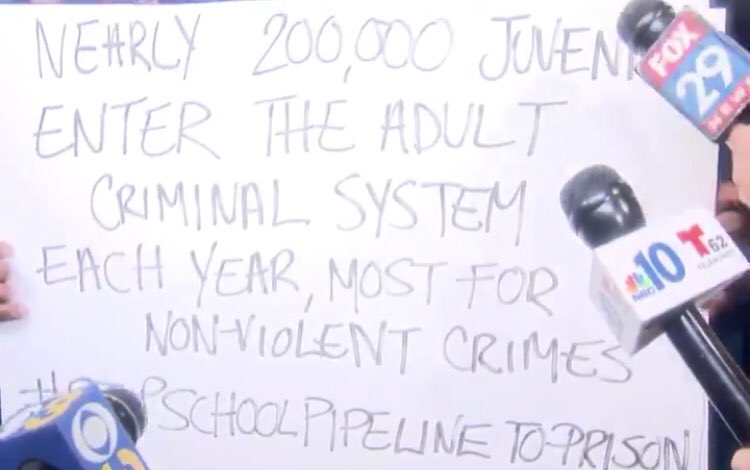 NEARLY 200,000 JUVENI
ENTER THE ADULT
CRIMINAL SYSTEM
EACH YEAR, MOST FOR
NON-VIOLENT CRIMES
SCHOOLPIPELINE TO-PRISON
FOX
29
NEWS
NBC
10
T
62
TELEMUNDO